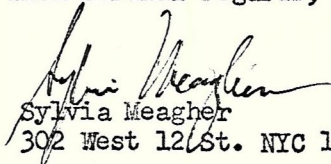 Sylvia Meagher
Sylvia Meagher
302 West 12 St. NYC 1